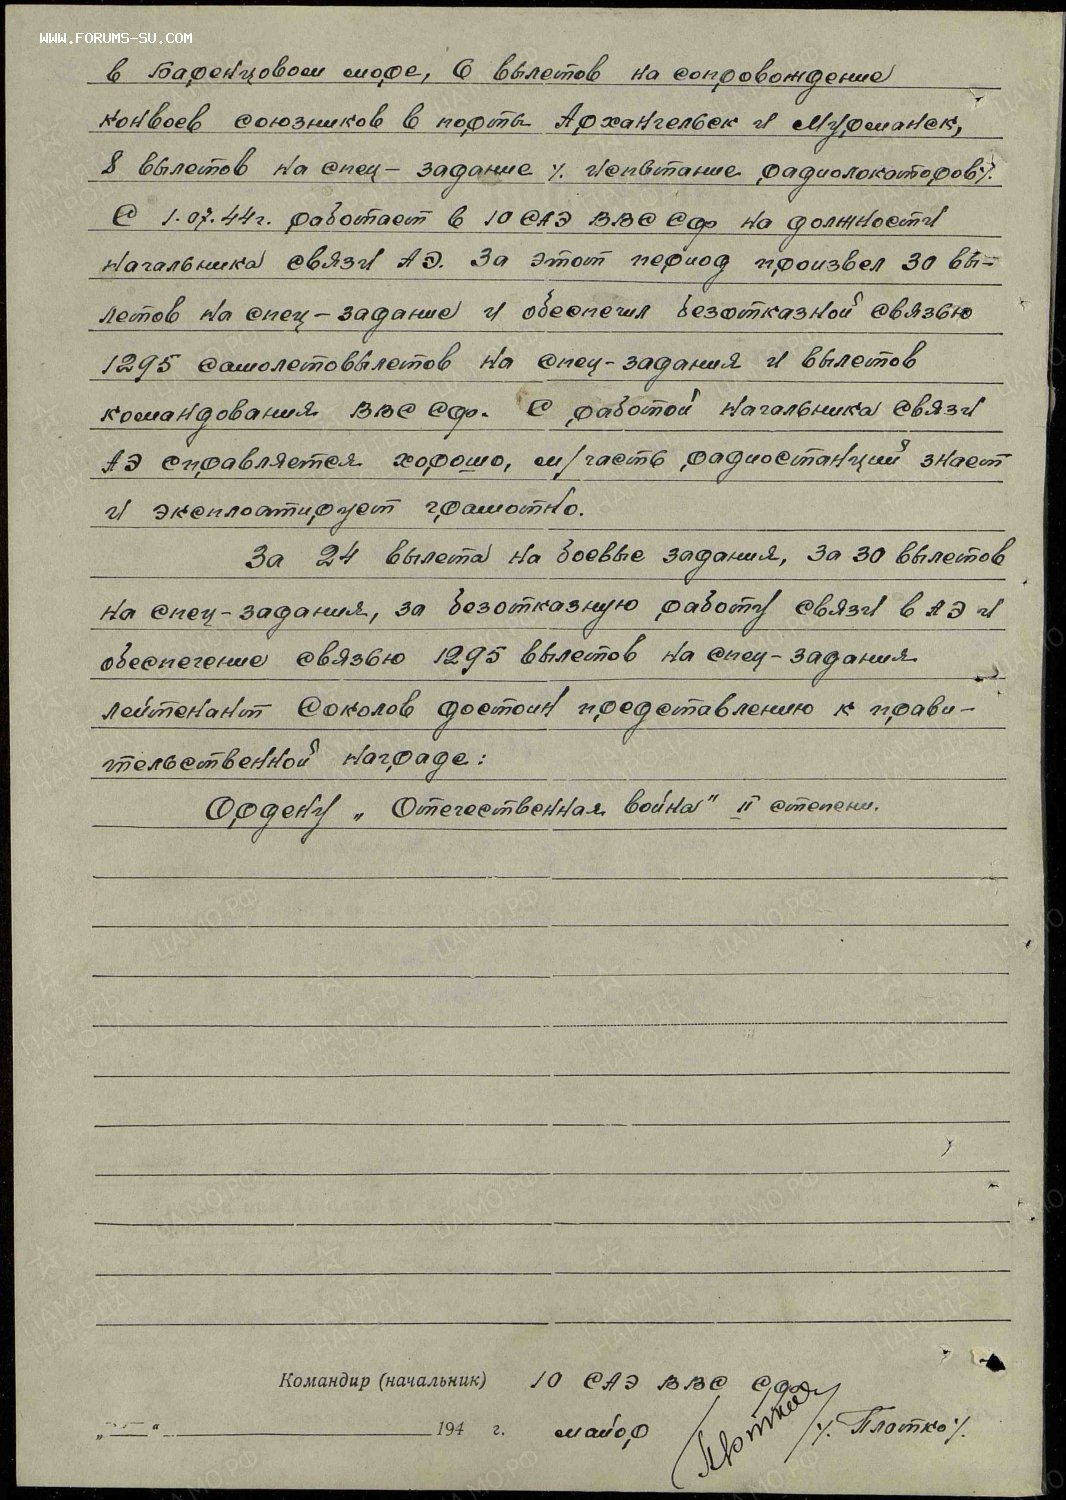 WWW.FORUMS-SU.COM
в Баренцовом море, 6 вылетов на сопровождение
конвоев союзников в порты Архангельск и Мурманск,
8 вылетов на спец-задание /. испытание радиолокаторов/.
С 1.07.44г. работает в 10 САЭ ВВС СФ на должности
начальника связи АЭ. За этот период произвел 30 вы-
летов на спец-задание и обеспечил безотказной связью
1295 самолетовылетов на спец-задания и вылетов
командования ВВС СФ. С работой начальника связи
АЭ справляется хорошо, м/часть радиостанций знает
и эксплоатирует грамотно.
За 24 вылета на боевые задания, за 30 вылетов
на спец-задания, за безотказную работу связи в АЭ и
обеспечение связью 1295 вылетов на спец-задания
лейтенант Соколов достоин представлению к прави-
тельственной награде:
Ордену „Отечественная война" II степени.
Командир (начальник) 10 САЭ ВВС СФ
„ “ 194 г. майор /. Плотко/.
ЦАМО.РФ
ПАМЯТЬ НАРОДА